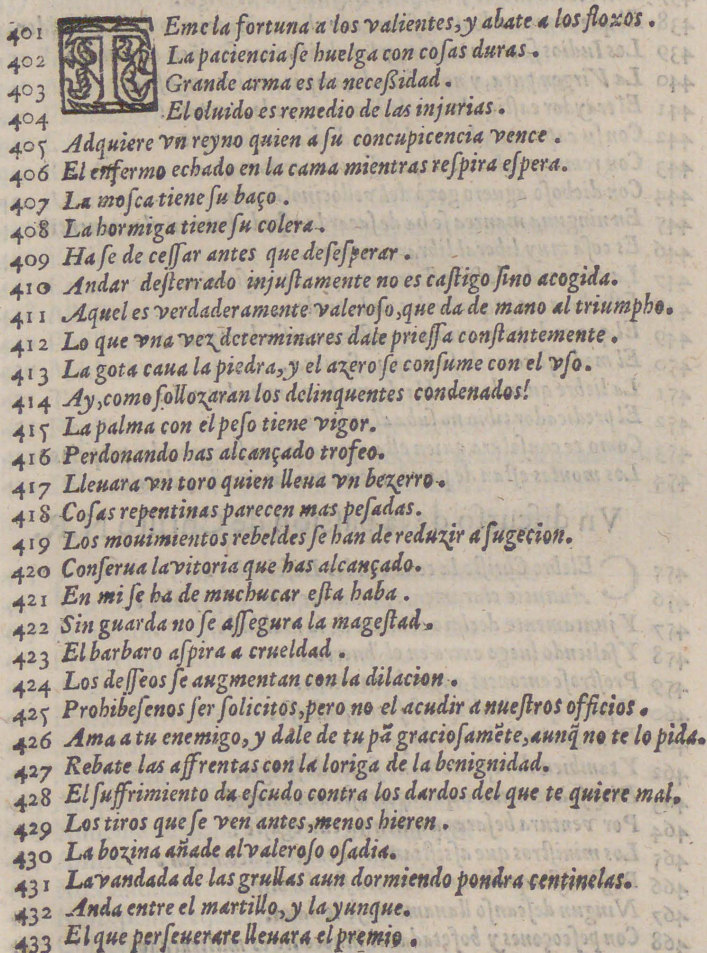 401 TEme la fortuna a los valientes, y abate a los floxos.
402 La paciencia ſe huelga con coſas duras.
403 Grande arma es la neceßidad.
404 El oluido es remedio de las injurias.
405 Adquiere vn reyno quien a ſu concupicencia vence.
406 El enfermo echado en la cama mientras reſpira eſpera.
407 La moſca tiene ſu baço.
408 La hormiga tiene ſu colera.
409 Ha ſe de ceſſar antes que deſeſperar.
410 Andar deſterrado injuſtamente no es caſtigo ſino acogida.
411 Aquel es verdaderamente valeroſo, que da de mano al triumpho.
412 Lo que vna vez determinares dale prieſſa conſtantemente.
413 La gota caua la piedra, y el azero ſe conſume con el vſo.
414 Ay, como ſollozaran los delinquentes condenados!
415 La palma con el peſo tiene vigor.
416 Perdonando has alcançado trofeo.
417 Lleuara vn toro quien lleua vn bezerro.
418 Coſas repentinas parecen mas peſadas.
419 Los mouimientos rebeldes ſe han de reduzir a ſugecion.
420 Conſerua la vitoria que has alcançado.
421 En mi ſe ha de muchucar eſta haba.
422 Sin guarda no ſe aſſegura la mageſtad.
423 El barbaro aſpira a crueldad.
424 Los deſſeos ſe augmentan con la dilacion.
425 Prohibeſenos ſer ſolicitos, pero no el acudir a nueſtros officios.
426 Ama a tu enemigo, y dale de tu pã gracioſamẽte, aunq̃ no te lo pida.
427 Rebate las affrentas con la loriga de la benignidad.
428 El ſuffrimiento da eſcudo contra los dardos del que te quiere mal.
429 Los tiros que ſe ven antes, menos hieren.
430 La bozina añade al valeroſo oſadia.
431 La vandada de las grullas aun dormiendo pondra centinelas.
432 Anda entre el martillo, y la yunque.
433 El que perſeuerare lleuara el premio.